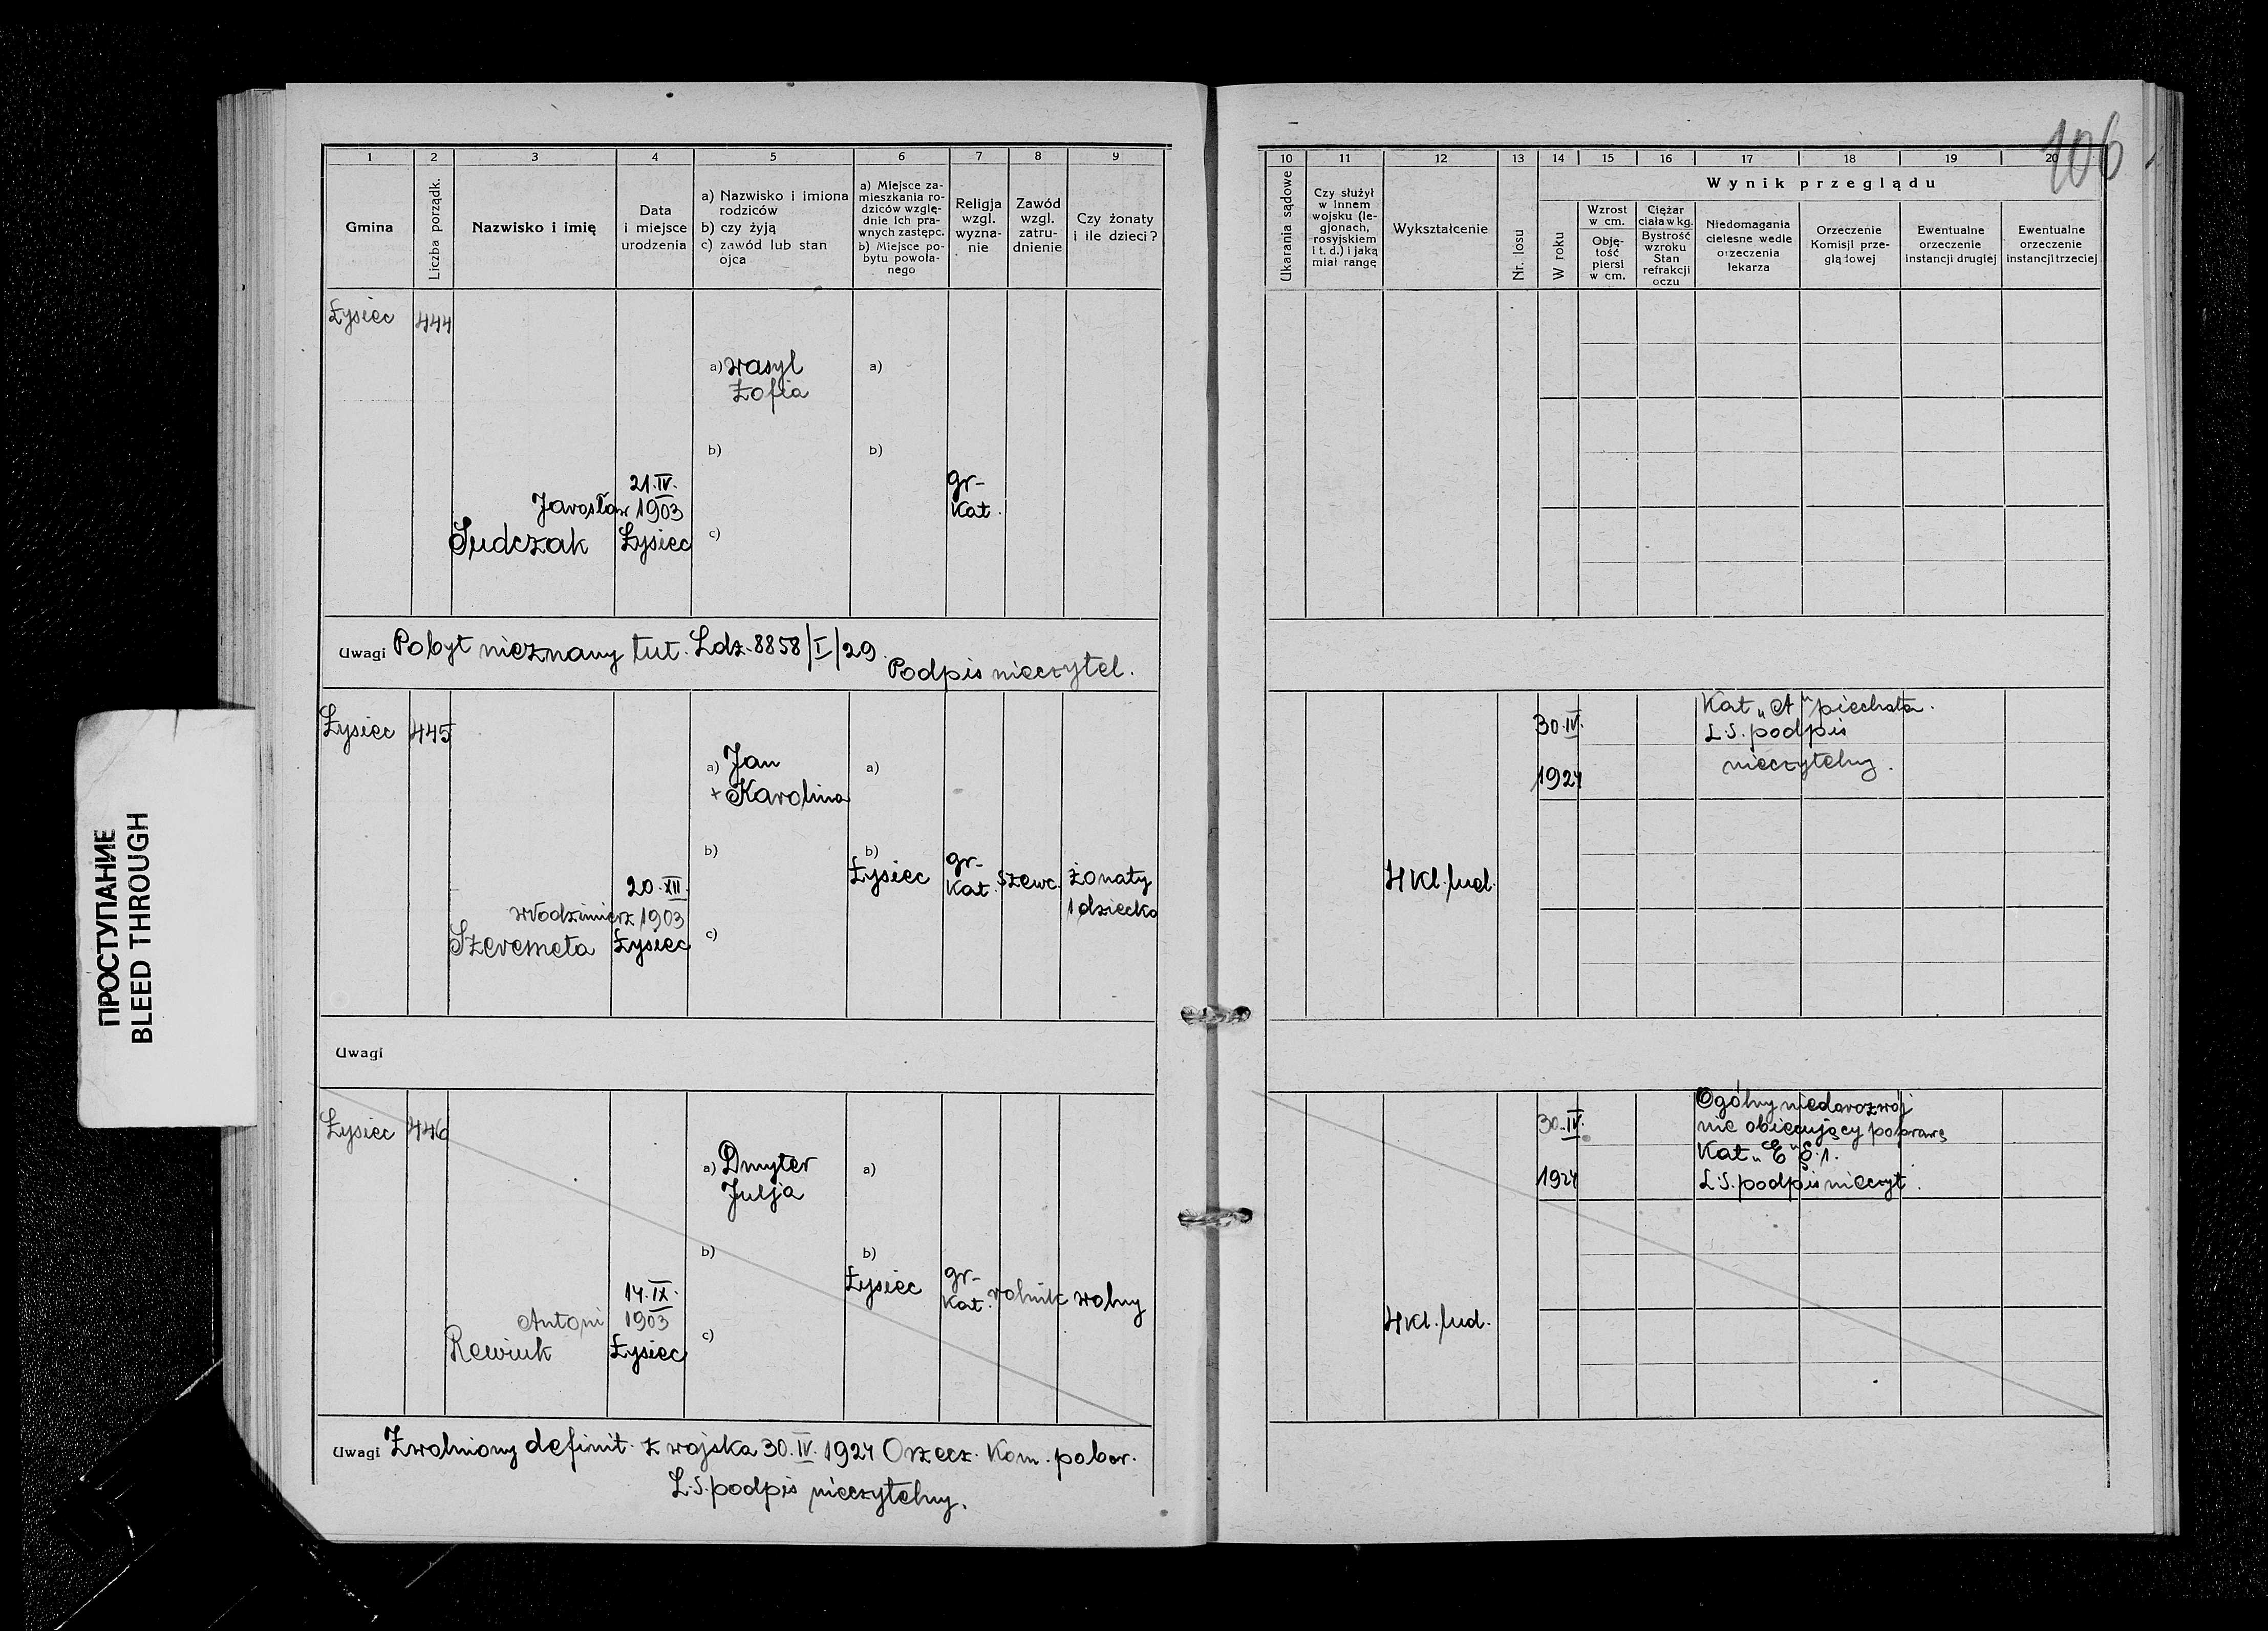 106
1
2
3
4
5
6
7
8
9
Gmina
Liczba porządk.
Nazwisko i imię
Data
i miejsce
urodzenia
a) Nazwisko i imiona
rodziców
b) czy żyją
c) zawód lub stan
ojca
a) Miejsce za-
mieszkania ro-
dziców wzglę-
dnie ich pra-
wnych zastępc.
b) Miejsce po-
bytu powoła-
nego
Religja
wzgl.
wyzna-
nie
Zawód
wzgl.
zatru-
dnienie
Czy żonaty
i ile dzieci?
Łysiec
444
a) Wasyl
Zofia
a)
b)
b)
Jarosław
Sudczak
21.IV.
1903
Łysiec
c)
gr-
Kat.
Uwagi Pobyt nieznany tut. Ldz. 8858/I/29.
Podpis nieczytel.
Łysiec
445
a) Jan
+ Karolina
a)
b)
b)
Łysiec
Włodzimierz
Szeremeta
20.XII.
1903
Łysiec
c)
gr-
Kat.
szewc.
żonaty
1 dziecko
Uwagi
Łysiec
446
a) Dmyter
Julja
a)
b)
b)
Łysiec
Antoni
Rewiuk
14.IX.
1903
Łysiec
c)
gr-
Kat.
rolnik
wolny
Uwagi Zwolniony definit. z wojska 30.IV.1924 Orzecz. Kom. pobor.
L.S. podpis nieczytelny.
10
11
12
13
14
15
16
17
18
19
20
Ukarania sądowe
Czy służył
w innem
wojsku (le-
gjonach,
rosyjskiem
i t. d.) i jaką
miał rangę
Wykształcenie
Nr. losu
Wynik przeglądu
W roku
Wzrost
w cm.
Obję-
tość
piersi
w cm.
Ciężar
ciała w kg.
Bystrość
wzroku
Stan
refrakcji
oczu
Niedomagania
cielesne wedle
orzeczenia
lekarza
Orzeczenie
Komisji prze-
glądowej
Ewentualne
orzeczenie
instancji drugiej
Ewentualne
orzeczenie
instancji trzeciej
30.IV.
1924
Kat „A" piechota.
L.S. podpis
nieczytelny.
4 Kl. lud.
30.IV.
1924
Ogólny niedorozwój
nie obiecujący poprawę
Kat „E" § 1.
L.S. podpis nieczyt.
4 Kl. lud.
ПРОСТУПАНИЕ
BLEED THROUGH